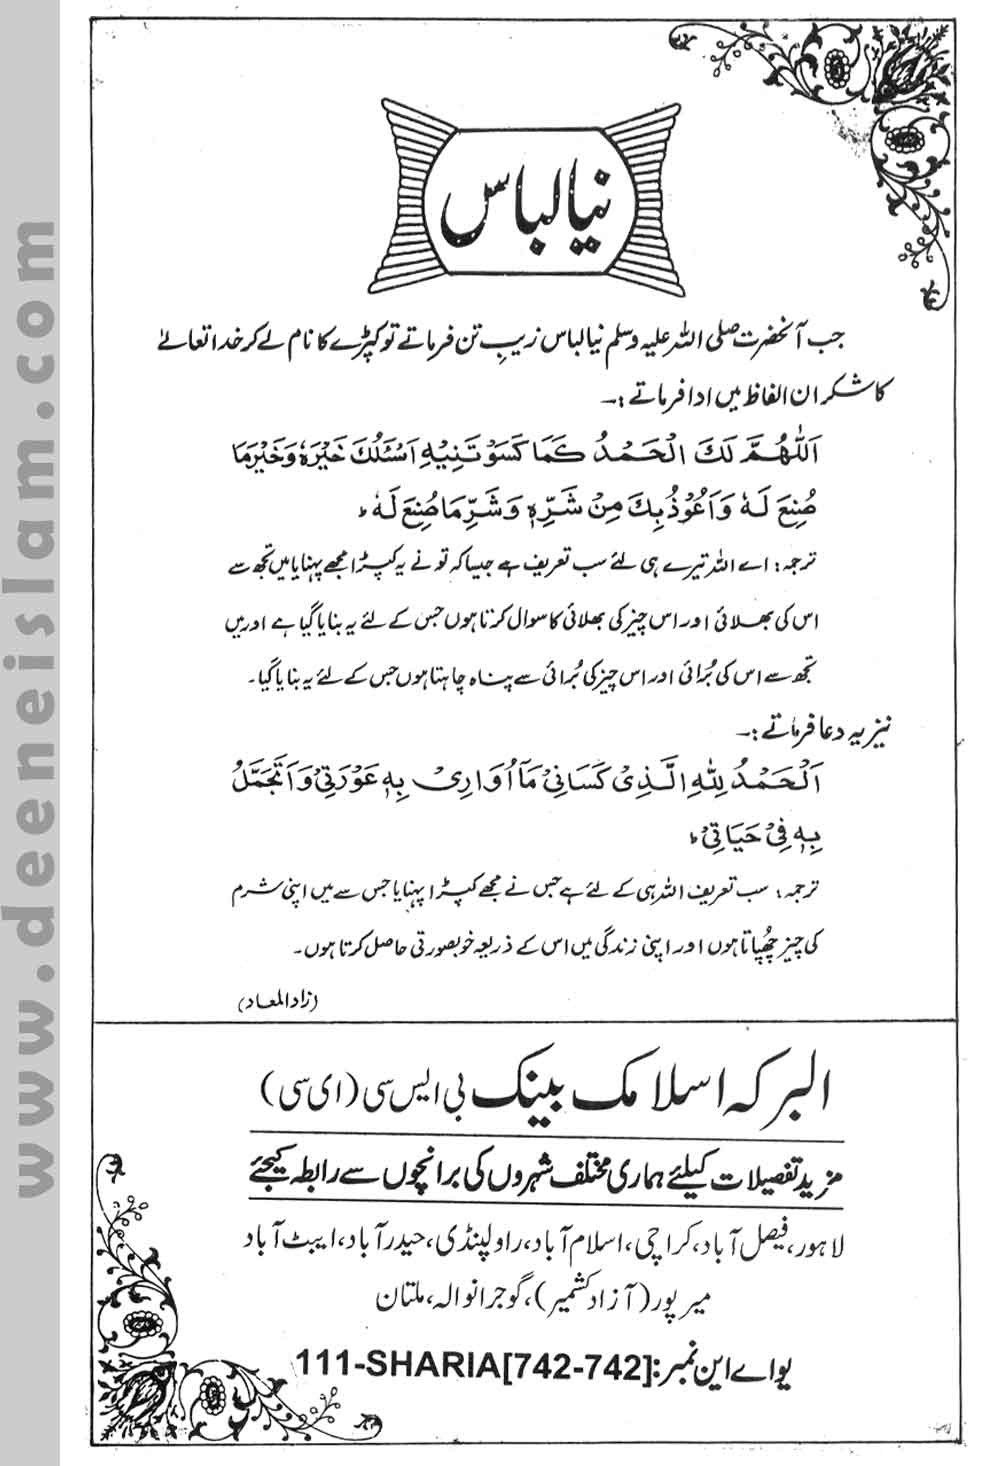 نیا لباس
جب آنحضرت صلی اللہ علیہ وسلم نیا لباس زیبِ تن فرماتے تو کپڑے کا نام لے کر خدا تعالےٰ
کا شکر ان الفاظ میں ادا فرماتے :۔
اَللّٰهُمَّ لَكَ الْحَمْدُ كَمَا كَسَوْتَنِيْهِ اَسْئَلُكَ خَيْرَهٗ وَخَيْرَ مَا
صُنِعَ لَهٗ وَاَعُوْذُ بِكَ مِنْ شَرِّهٖ وَشَرِّ مَا صُنِعَ لَهٗ ط
ترجمہ: اے اللہ تیرے ہی لئے سب تعریف ہے جیسا کہ تو نے یہ کپڑا مجھے پہنایا میں تجھ سے
اس کی بھلائی اور اس چیز کی بھلائی کا سوال کرتا ہوں جس کے لئے یہ بنایا گیا ہے اور میں
تجھ سے اس کی بُرائی اور اس چیز کی بُرائی سے پناہ چاہتا ہوں جس کے لئے یہ بنایا گیا۔
نیز یہ دعا فرماتے :۔
اَلْحَمْدُ لِلّٰهِ الَّذِیْ كَسَانِیْ مَآ اُوَارِیْ بِهٖ عَوْرَتِیْ وَاَتَجَمَّلُ
بِهٖ فِیْ حَیَاتِیْ ط
ترجمہ: سب تعریف اللہ ہی کے لئے ہے جس نے مجھے کپڑا پہنایا جس سے میں اپنی شرم
کی چیز چھُپاتا ہوں اور اپنی زندگی میں اس کے ذریعہ خوبصورتی حاصل کرتا ہوں۔
(زاد المعاد)
البرکہ اسلامک بینک بی ایس سی (ای سی)
مزید تفصیلات کیلئے ہماری مختلف شہروں کی برانچوں سے رابطہ کیجئے
لاہور، فیصل آباد، کراچی، اسلام آباد، راولپنڈی، حیدر آباد، ایبٹ آباد
میر پور (آزاد کشمیر)، گوجرانوالہ، ملتان
یو اے این نمبر: 111-SHARIA[742-742]
www.deeneislam.com